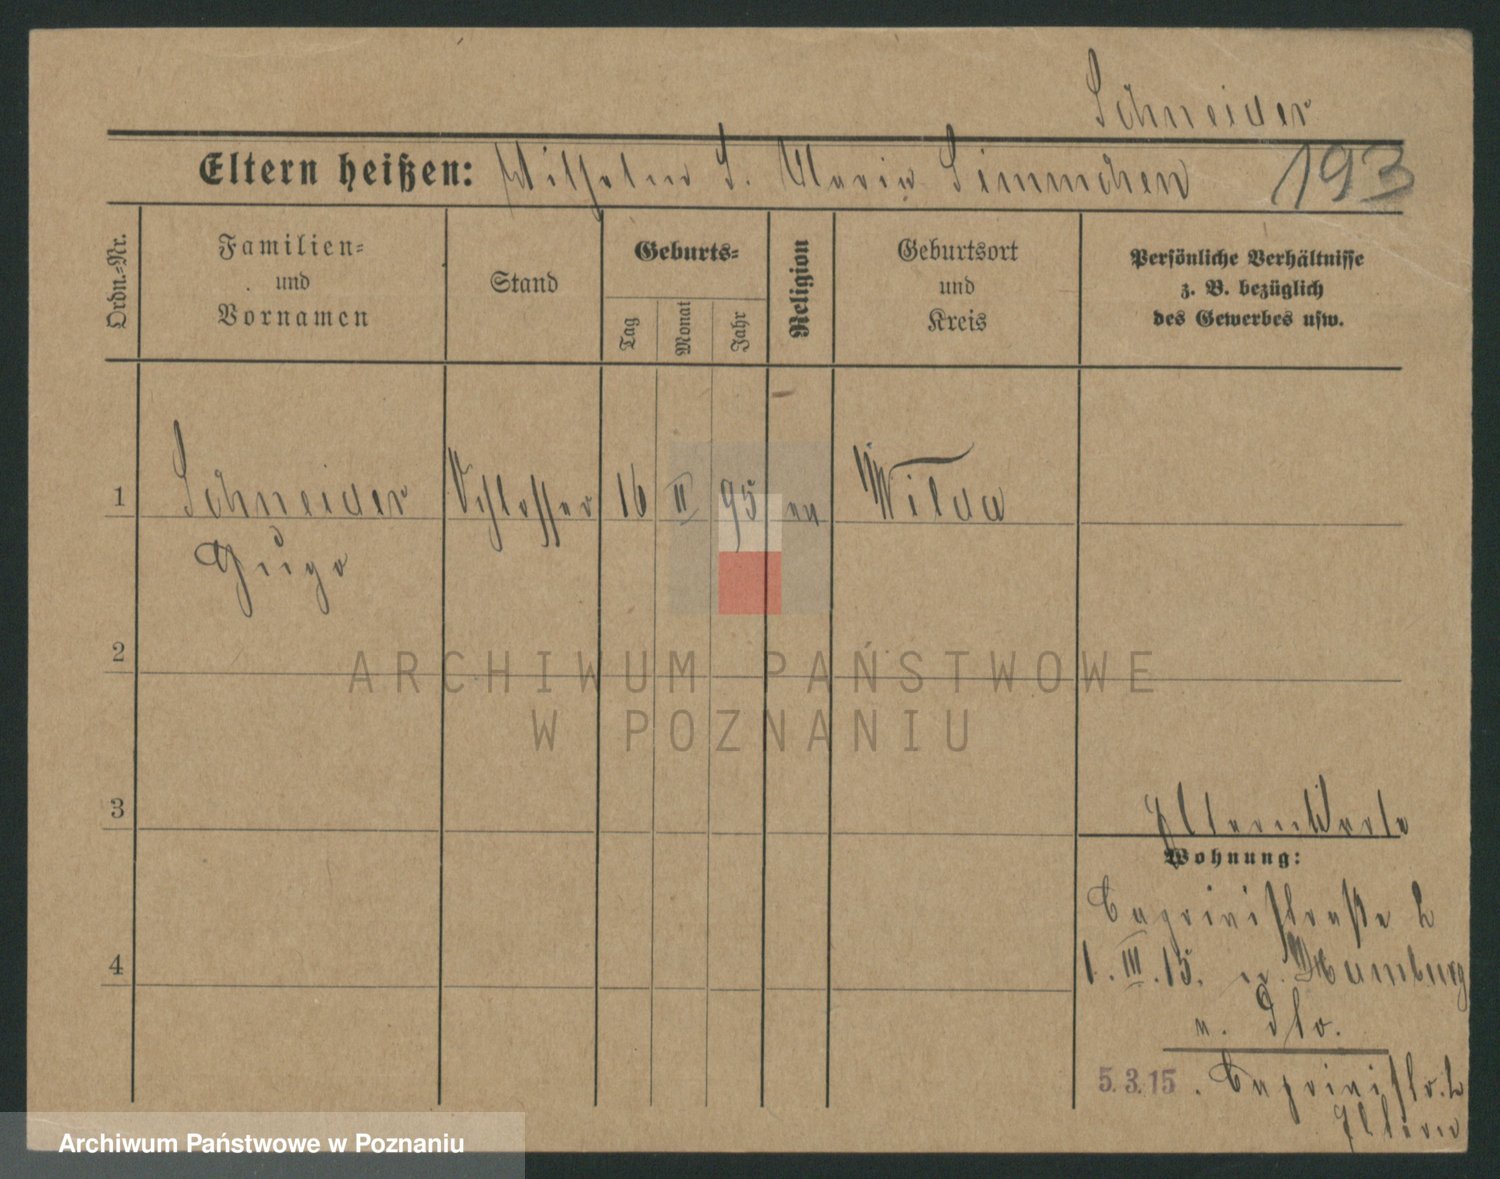 Schneider
Eltern heißen: Wilhelm S. Maria Simmchen 193
Ordn.-Nr.
Familien-
und
Vornamen
Stand
Geburts-
Tag
Monat
Jahr
Religion
Geburtsort
und
Kreis
Persönliche Verhältnisse
z. B. bezüglich
des Gewerbes usw.
1 Schneider Schlosser 16 II 95 ev Wilda
Hugo
2
3
4
Eltern
Wohnung:
Caprivistraße 2
1. III. 15. n.
n.
5.3.15. Caprivistr. 2
Eltern
ARCHIWUM PAŃSTWOWE
W POZNANIU
Archiwum Państwowe w Poznaniu